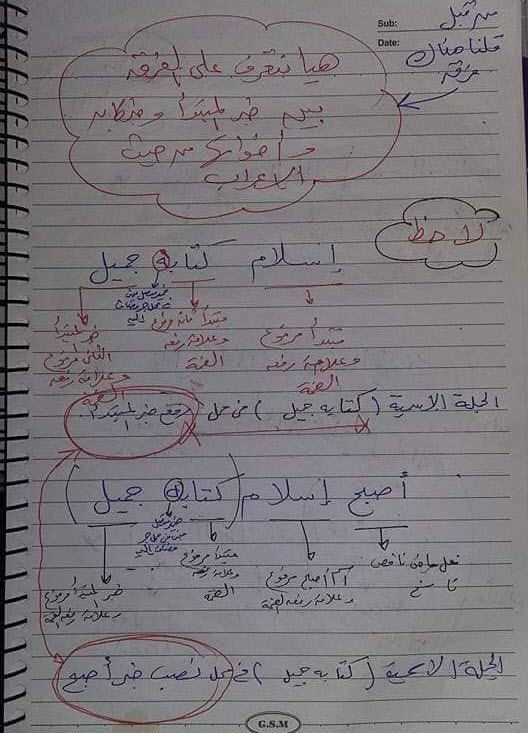 Sub:
Date:
من قبل
قلنا هناك
فرقه
هيا نتعرف على الفرقه
بين خبر المبتدأ وخبر كان
وأخواتها من حيث
الاعراب
لاحظ
إسلام كتابه جميل
مبتدأ مرفوع
وعلامة رفعه
الضمة
مبتدأ ثانٍ مرفوع
وعلامة رفعه
الضمة
ضمير متصل مبني
في محل جر مضاف
إليه
خبر المبتدأ
الثانى مرفوع
وعلامة رفعه
الضمة
الجملة الاسمية (كتابه جميل) فى محل رفع خبر المبتدأ
أصبح إسلام (كتابه جميل)
فعل ماض ناقص
ناسخ
اسم أصبح مرفوع
وعلامة رفعه الضمة
مبتدأ مرفوع
وعلامة رفعه
الضمة
ضمير متصل
مبنى فى محل جر
مضاف إليه
خبر المبتدأ مرفوع
وعلامة رفعه الضمة
الجملة الاسمية (كتابه جميل) فى محل نصب خبر أصبح
G.S.M